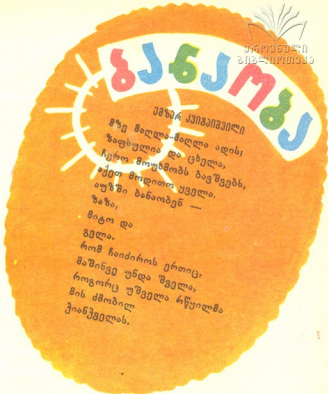 ეროვნული
ბიბლიოთეკა
ბანაობა
ემზარ კვიტაიშვილი
მზე მაღლა-მაღლა ადის;
ზაფხულია და ცხელა,
ჩერო მოუხმობს ბავშვებს,
იქეთ მოდითო ყველა.
აუზში ბანაობენ —
ზაზა,
მიტო და
გელა.
რომ ჩაიძიროს ერთიც,
მაშინვე უნდა შველა,
როგორც უშველა რწყილმა
მის ძმობილ
ჭიანჭველას.